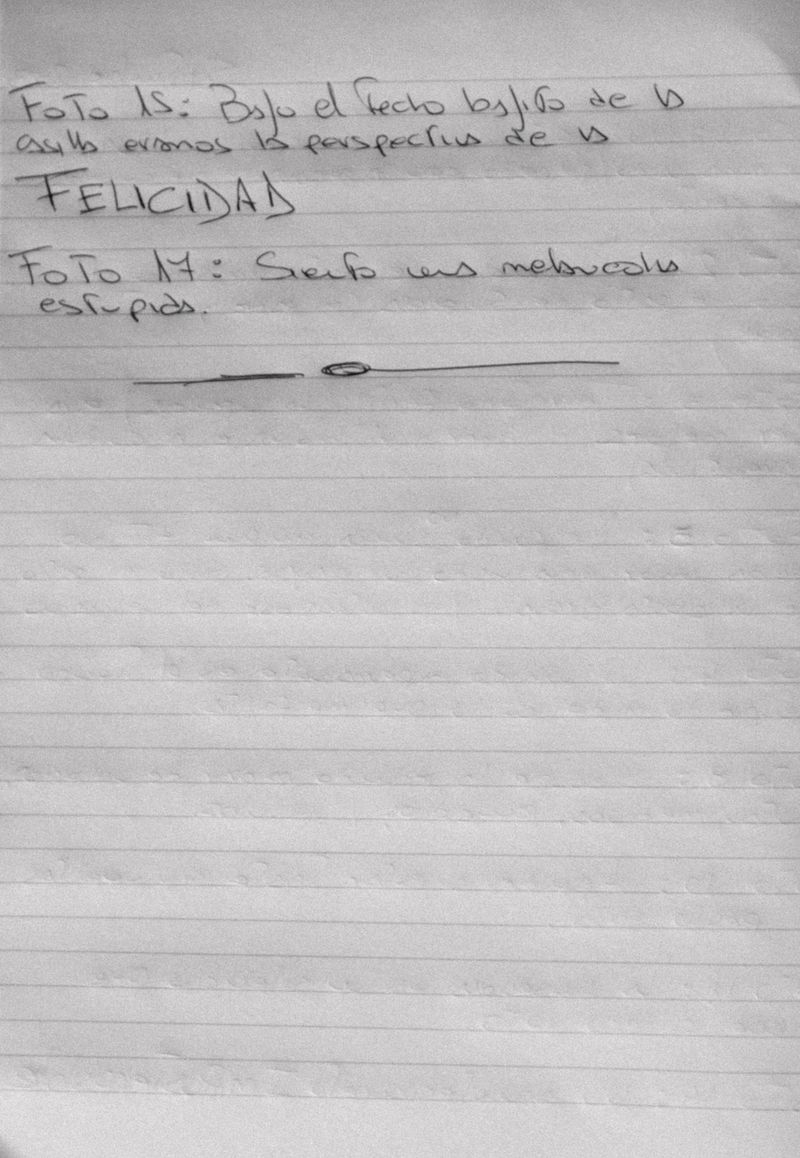 FOTO 15: Bajo el techo bajito de la
casilla eramos la perspectiva de la
FELICIDAD
FOTO 17: Siento una melancolia
estupida.